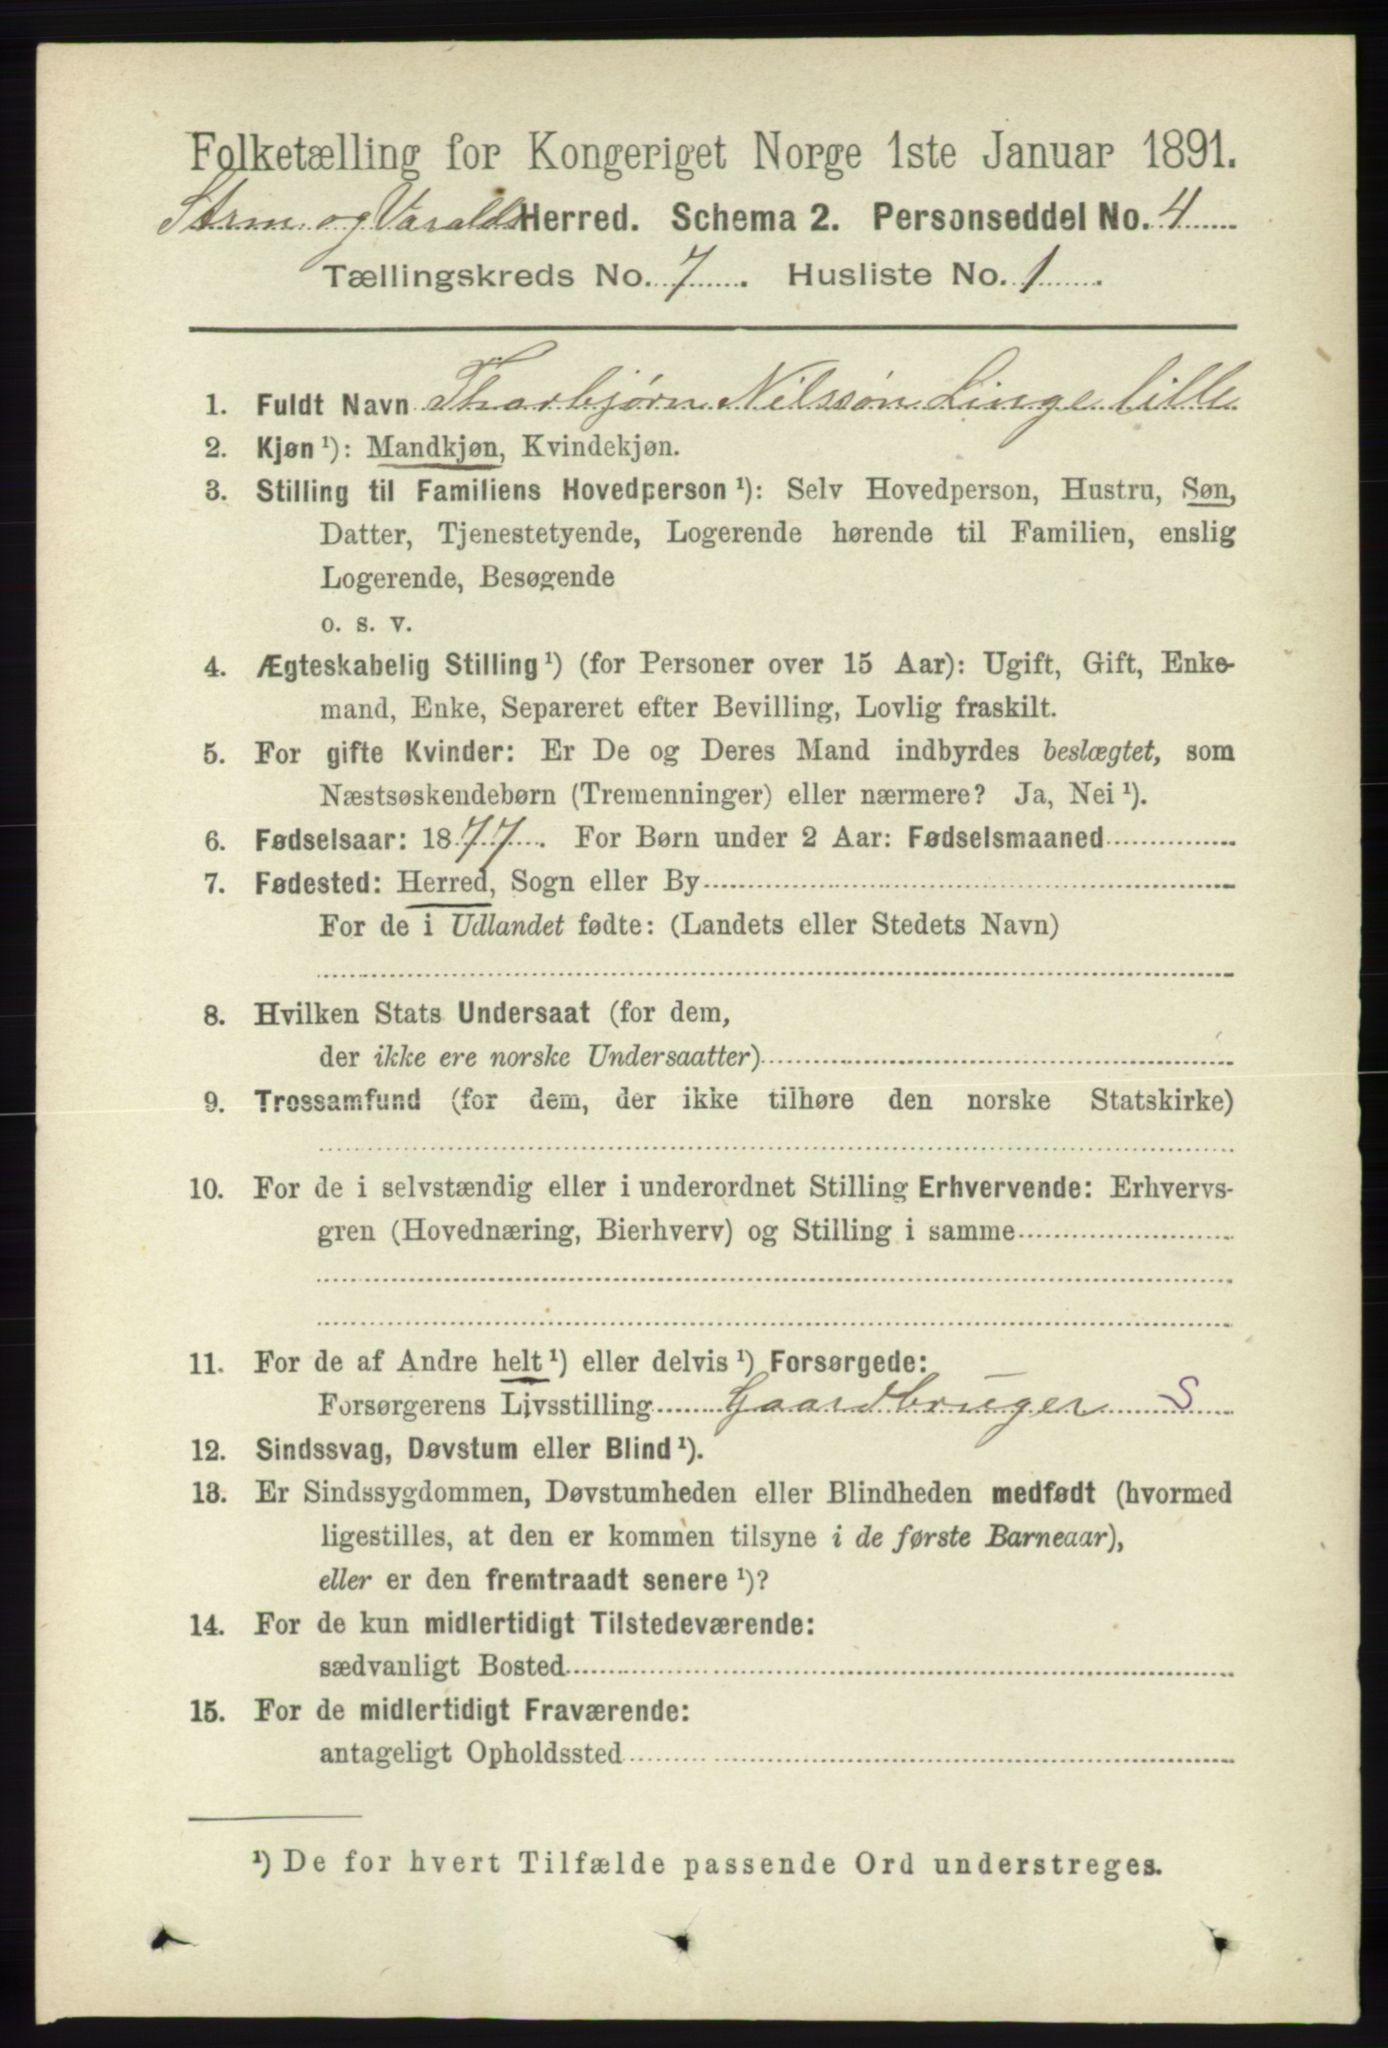 Folketælling for Kongeriget Norge 1ste Januar 1891.
Strm. og Varalds Herred. Schema 2. Personseddel No. 4
Tællingskreds No. 7. Husliste No. 1.
1. Fuldt Navn Thorbjørn Nilssøn Linge lille
2. Kjøn ¹): Mandkjøn, Kvindekjøn.
3. Stilling til Familiens Hovedperson ¹): Selv Hovedperson, Hustru, Søn,
Datter, Tjenestetyende, Logerende hørende til Familien, enslig
Logerende, Besøgende
o. s. v.
4. Ægteskabelig Stilling ¹) (for Personer over 15 Aar): Ugift, Gift, Enke-
mand, Enke, Separeret efter Bevilling, Lovlig fraskilt.
5. For gifte Kvinder: Er De og Deres Mand indbyrdes beslægtet, som
Næstsøskendebørn (Tremenninger) eller nærmere? Ja, Nei ¹).
6. Fødselsaar: 1877. For Børn under 2 Aar: Fødselsmaaned
7. Fødested: Herred, Sogn eller By
For de i Udlandet fødte: (Landets eller Stedets Navn)
8. Hvilken Stats Undersaat (for dem,
der ikke ere norske Undersaatter)
9. Trossamfund (for dem, der ikke tilhøre den norske Statskirke)
10. For de i selvstændig eller i underordnet Stilling Erhvervende: Erhvervs-
gren (Hovednæring, Bierhverv) og Stilling i samme
11. For de af Andre helt ¹) eller delvis ¹) Forsørgede:
Forsørgerens Livsstilling Gaardbruger S
12. Sindssvag, Døvstum eller Blind ¹).
13. Er Sindssygdommen, Døvstumheden eller Blindheden medfødt (hvormed
ligestilles, at den er kommen tilsyne i de første Barneaar),
eller er den fremtraadt senere ¹)?
14. For de kun midlertidigt Tilstedeværende:
sædvanligt Bosted
15. For de midlertidigt Fraværende:
antageligt Opholdssted
¹) De for hvert Tilfælde passende Ord understreges.